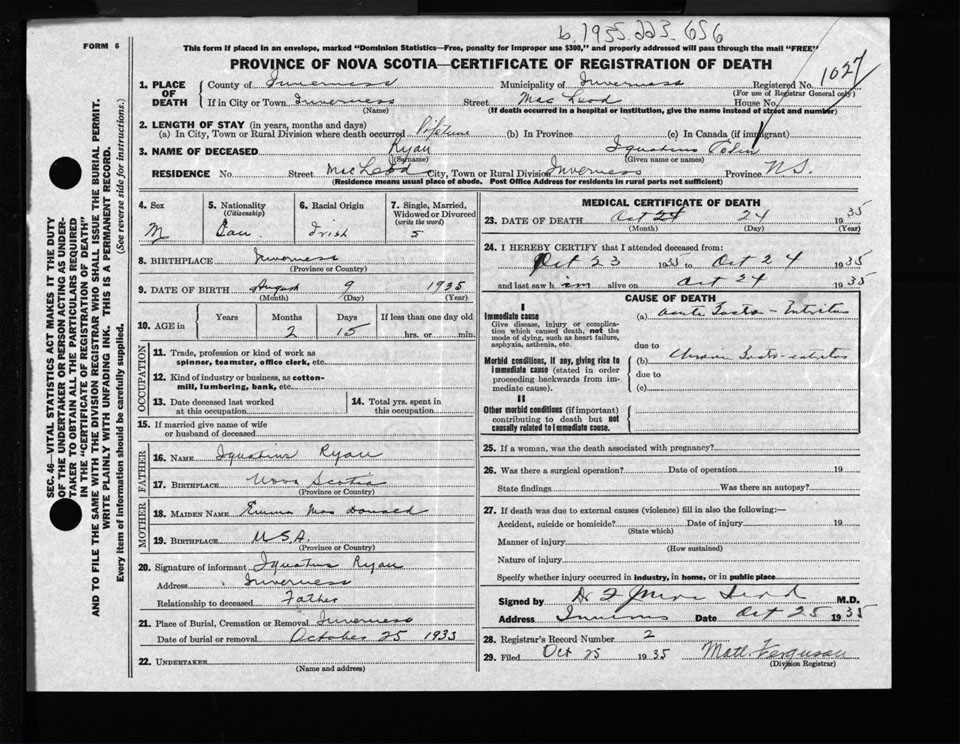 b.1935.223.656
FORM 6
This form if placed in an envelope, marked "Dominion Statistics—Free, penalty for improper use $300," and properly addressed will pass through the mail "FREE"
PROVINCE OF NOVA SCOTIA—CERTIFICATE OF REGISTRATION OF DEATH
1. PLACE OF DEATH
County of Inverness Municipality of Inverness Registered No. 1027
(For use of Registrar General only)
If in City or Town Inverness Street MacLeod House No.
(Name) (If death occurred in a hospital or institution, give the name instead of street and number)
2. LENGTH OF STAY (in years, months and days)
(a) In City, Town or Rural Division where death occurred lifetime (b) In Province (c) In Canada (if immigrant)
3. NAME OF DECEASED Ryan Ignatius
(Surname) (Given name or names)
RESIDENCE No. Street MacLeod City, Town or Rural Division Inverness Province N.S.
(Residence means usual place of abode. Post Office Address for residents in rural parts not sufficient)
4. Sex
M
5. Nationality
(Citizenship)
Can
6. Racial Origin
Irish
7. Single, Married, Widowed or Divorced
(write the word)
S
8. BIRTHPLACE Inverness
(Province or Country)
9. DATE OF BIRTH August 9 1935
(Month) (Day) (Year)
10. AGE in Years Months Days If less than one day old
2 15 hrs. or min.
OCCUPATION
11. Trade, profession or kind of work as spinner, teamster, office clerk, etc.
12. Kind of industry or business, as cotton-mill, lumbering, bank, etc.
13. Date deceased last worked at this occupation
14. Total yrs. spent in this occupation
15. If married give name of wife or husband of deceased
FATHER
16. NAME Ignatius Ryan
17. BIRTHPLACE Nova Scotia
(Province or Country)
MOTHER
18. MAIDEN NAME Emma MacDonald
19. BIRTHPLACE U.S.A.
(Province or Country)
20. Signature of informant Ignatius Ryan
Address Inverness
Relationship to deceased Father
21. Place of Burial, Cremation or Removal Inverness
Date of burial or removal October 25 1935
22. UNDERTAKER
(Name and address)
MEDICAL CERTIFICATE OF DEATH
23. DATE OF DEATH Oct 24 24 1935
(Month) (Day) (Year)
24. I HEREBY CERTIFY that I attended deceased from:
Oct 23 1935 to Oct 24 1935
and last saw him alive on Oct 24 1935
CAUSE OF DEATH
I
Immediate cause
Give disease, injury or complication which caused death, not the mode of dying, such as heart failure, asphyxia, asthenia, etc.
(a) acute Gastro-Enteritis
due to
Morbid conditions, if any, giving rise to immediate cause (stated in order proceeding backwards from immediate cause).
(b) Chronic Gastro-enteritis
due to
(c)
II
Other morbid conditions (if important) contributing to death but not causally related to immediate cause.
25. If a woman, was the death associated with pregnancy?
26. Was there a surgical operation? Date of operation 19
State findings Was there an autopsy?
27. If death was due to external causes (violence) fill in also the following:—
Accident, suicide or homicide? Date of injury 19
(State which)
Manner of injury
(How sustained)
Nature of injury
Specify whether injury occurred in industry, in home, or in public place
Signed by Dr M.D.
Address Inverness Date Oct 25 1935
28. Registrar's Record Number 2
29. Filed Oct 25 1935 Matt Ferguson
(Division Registrar)
SEC. 46—VITAL STATISTICS ACT MAKES IT THE DUTY
OF THE UNDERTAKER OR PERSON ACTING AS UNDER-
TAKER TO OBTAIN ALL THE PARTICULARS REQUIRED
IN THE "CERTIFICATE OF REGISTRATION OF DEATH"
AND TO FILE THE SAME WITH THE DIVISION REGISTRAR WHO SHALL ISSUE THE BURIAL PERMIT.
WRITE PLAINLY WITH UNFADING INK. THIS IS A PERMANENT RECORD.
Every item of information should be carefully supplied. (See reverse side for instructions.)